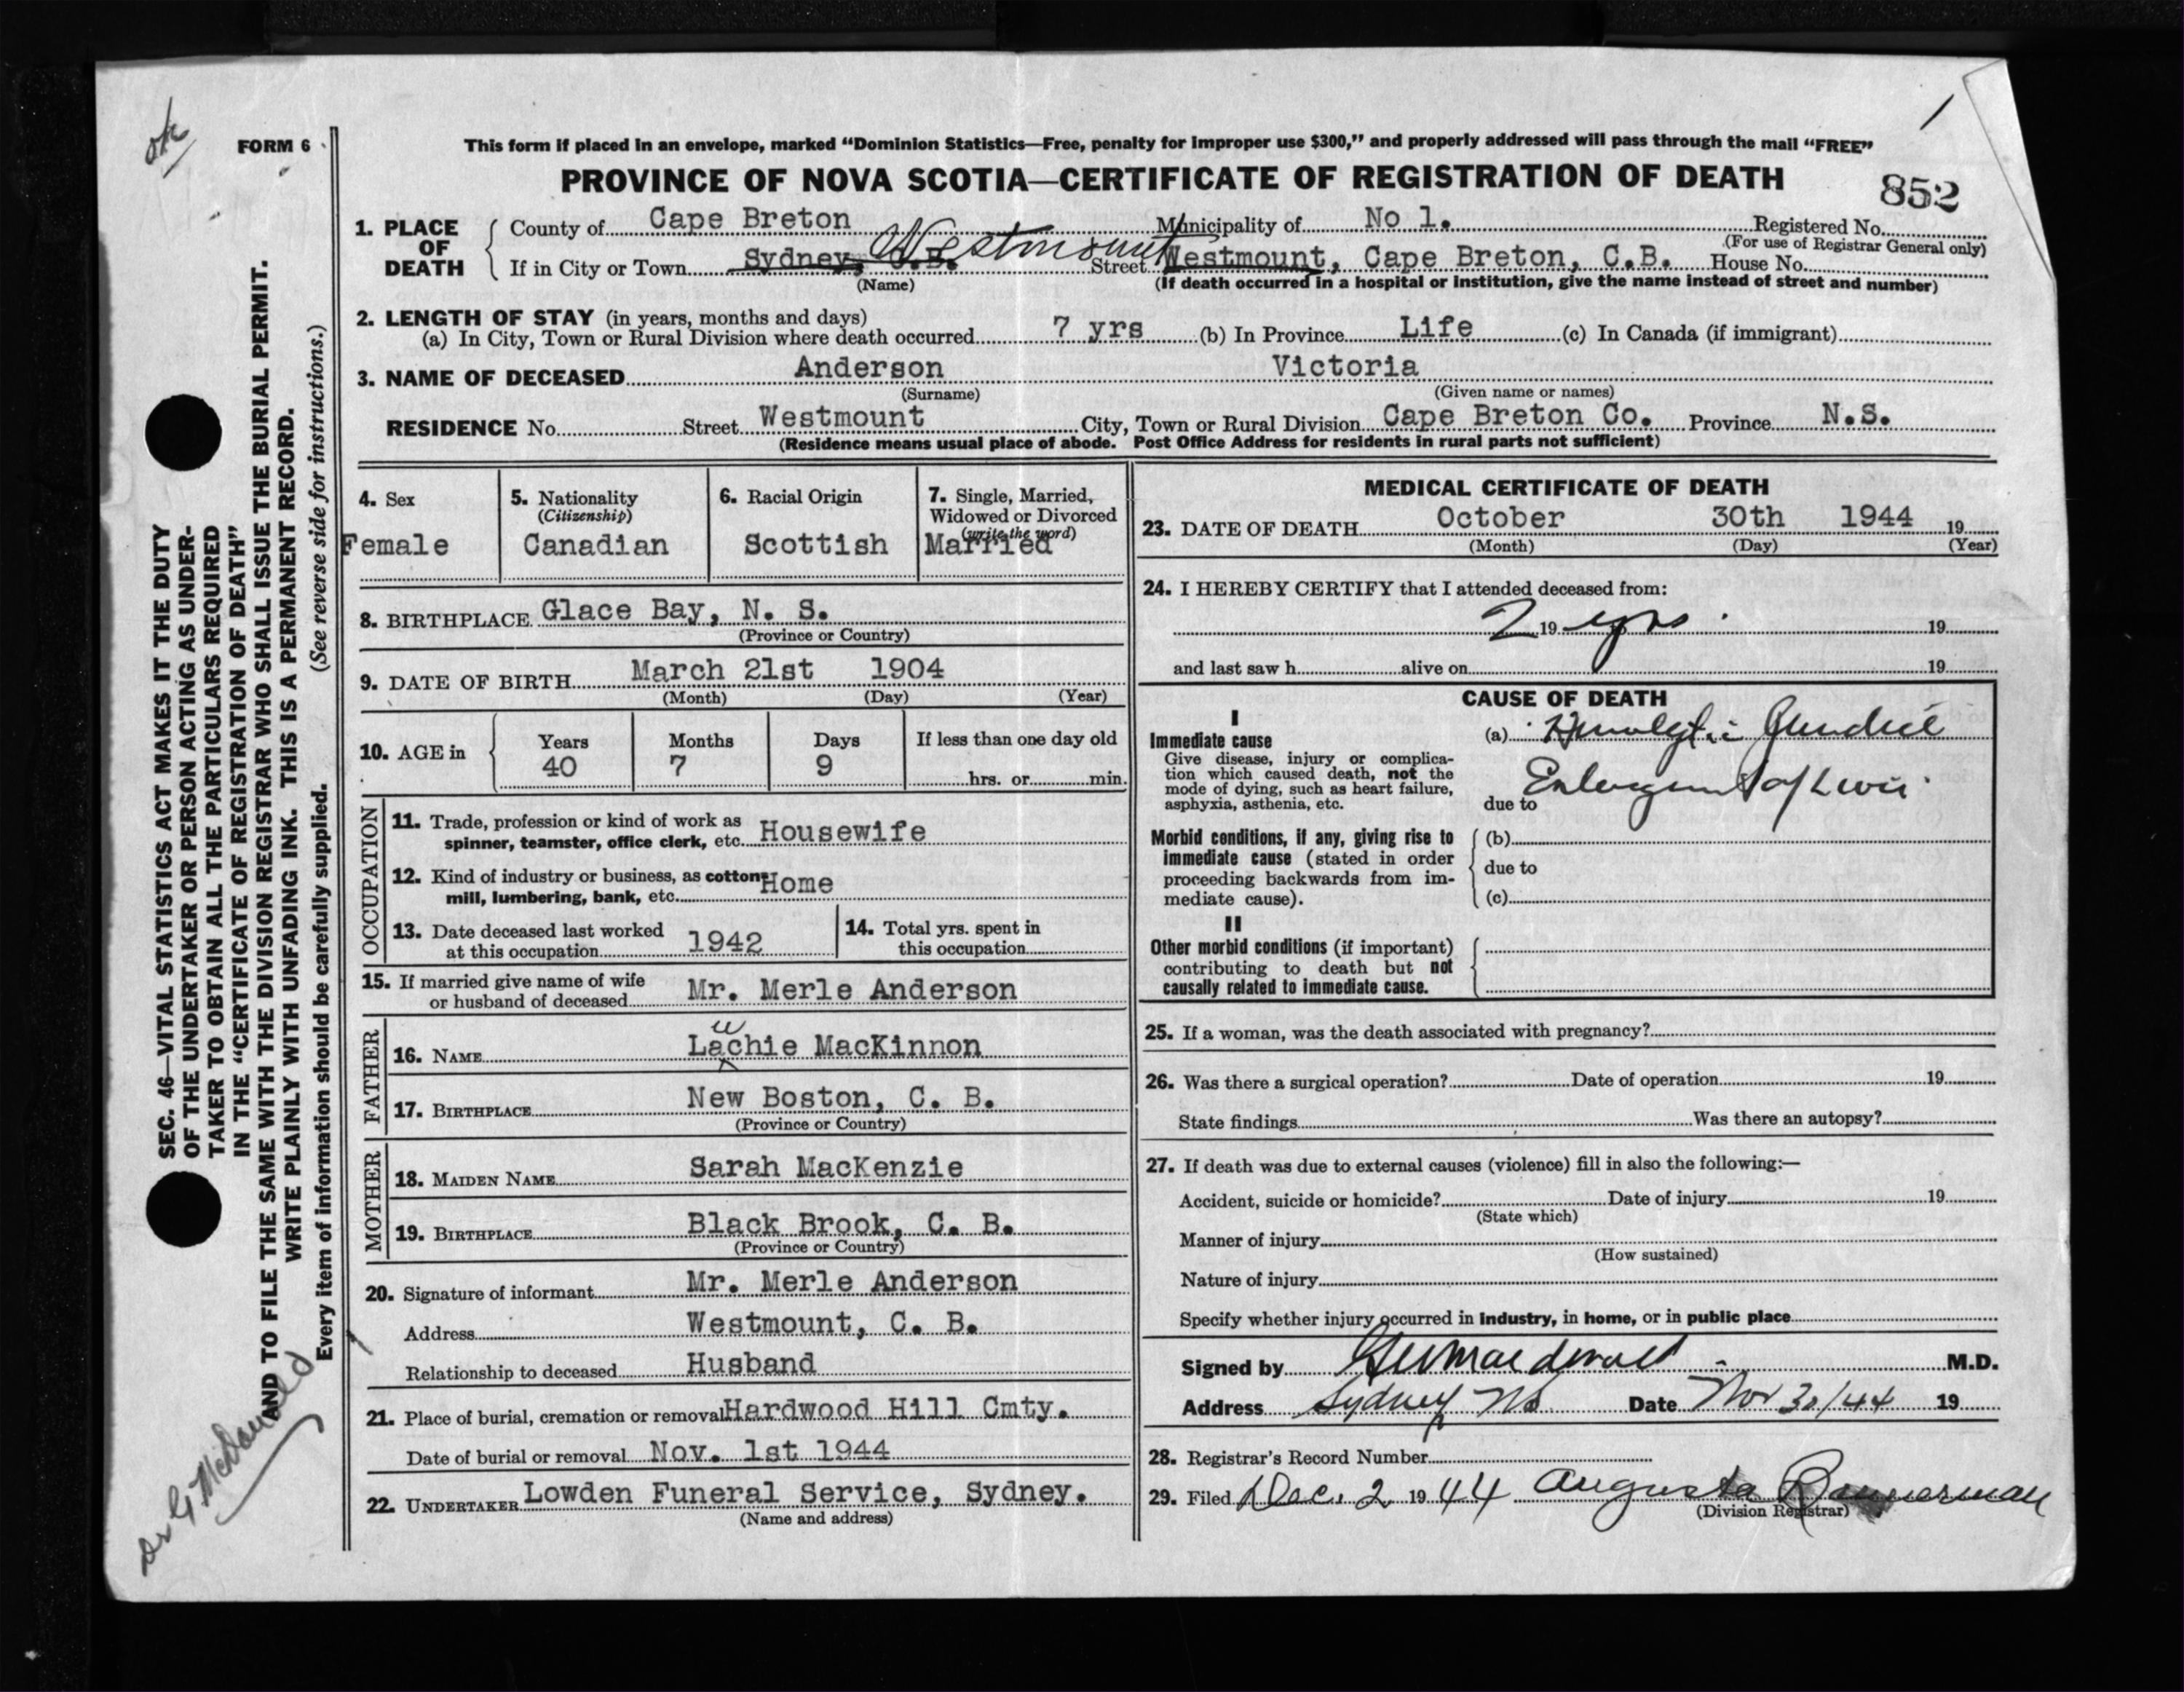 ok
FORM 6
This form if placed in an envelope, marked “Dominion Statistics—Free, penalty for improper use $300,” and properly addressed will pass through the mail “FREE”
PROVINCE OF NOVA SCOTIA—CERTIFICATE OF REGISTRATION OF DEATH
852
1. PLACE OF DEATH
County of Cape Breton Municipality of No 1. Registered No.
(For use of Registrar General only)
If in City or Town Sydney, C.B. Westmount Street Westmount, Cape Breton, C.B. House No.
(Name) (If death occurred in a hospital or institution, give the name instead of street and number)
2. LENGTH OF STAY (in years, months and days)
(a) In City, Town or Rural Division where death occurred 7 yrs (b) In Province Life (c) In Canada (if immigrant)
3. NAME OF DECEASED Anderson Victoria
(Surname) (Given name or names)
RESIDENCE No. Street Westmount City, Town or Rural Division Cape Breton Co. Province N.S.
(Residence means usual place of abode. Post Office Address for residents in rural parts not sufficient)
4. Sex
Female
5. Nationality
(Citizenship)
Canadian
6. Racial Origin
Scottish
7. Single, Married,
Widowed or Divorced
(write the word)
Married
8. BIRTHPLACE Glace Bay, N. S.
(Province or Country)
9. DATE OF BIRTH March 21st 1904
(Month) (Day) (Year)
10. AGE in
Years Months Days If less than one day old
40 7 9 hrs. or min.
OCCUPATION
11. Trade, profession or kind of work as
spinner, teamster, office clerk, etc. Housewife
12. Kind of industry or business, as cotton
mill, lumbering, bank, etc. Home
13. Date deceased last worked
at this occupation 1942
14. Total yrs. spent in
this occupation
15. If married give name of wife
or husband of deceased Mr. Merle Anderson
FATHER
u
16. NAME Lachie MacKinnon
17. BIRTHPLACE New Boston, C. B.
(Province or Country)
MOTHER
18. MAIDEN NAME Sarah MacKenzie
19. BIRTHPLACE Black Brook, C. B.
(Province or Country)
20. Signature of informant Mr. Merle Anderson
Address Westmount, C. B.
Relationship to deceased Husband
21. Place of burial, cremation or removal Hardwood Hill Cmty.
Date of burial or removal Nov. 1st 1944
22. UNDERTAKER Lowden Funeral Service, Sydney.
(Name and address)
MEDICAL CERTIFICATE OF DEATH
23. DATE OF DEATH October 30th 1944 19
(Month) (Day) (Year)
24. I HEREBY CERTIFY that I attended deceased from:
2 19 yrs. 19
and last saw h alive on 19
CAUSE OF DEATH
I
Immediate cause
Give disease, injury or complica-
tion which caused death, not the
mode of dying, such as heart failure,
asphyxia, asthenia, etc.
(a)
due to Enlargement of Liver
Morbid conditions, if any, giving rise to
immediate cause (stated in order
proceeding backwards from im-
mediate cause).
(b)
due to
(c)
II
Other morbid conditions (if important)
contributing to death but not
causally related to immediate cause.
25. If a woman, was the death associated with pregnancy?
26. Was there a surgical operation? Date of operation 19
State findings Was there an autopsy?
27. If death was due to external causes (violence) fill in also the following:—
Accident, suicide or homicide? Date of injury 19
(State which)
Manner of injury
(How sustained)
Nature of injury
Specify whether injury occurred in industry, in home, or in public place
Signed by Macdonald M.D.
Address Sydney NS Date Nov 30/44 19
28. Registrar's Record Number
29. Filed Dec. 2 1944 Augusta Bannerman
(Division Registrar)
SEC. 46—VITAL STATISTICS ACT MAKES IT THE DUTY
OF THE UNDERTAKER OR PERSON ACTING AS UNDER-
TAKER TO OBTAIN ALL THE PARTICULARS REQUIRED
IN THE “CERTIFICATE OF REGISTRATION OF DEATH”
AND TO FILE THE SAME WITH THE DIVISION REGISTRAR WHO SHALL ISSUE THE BURIAL PERMIT.
WRITE PLAINLY WITH UNFADING INK. THIS IS A PERMANENT RECORD.
Every item of information should be carefully supplied. (See reverse side for instructions.)
Dr G McDonald